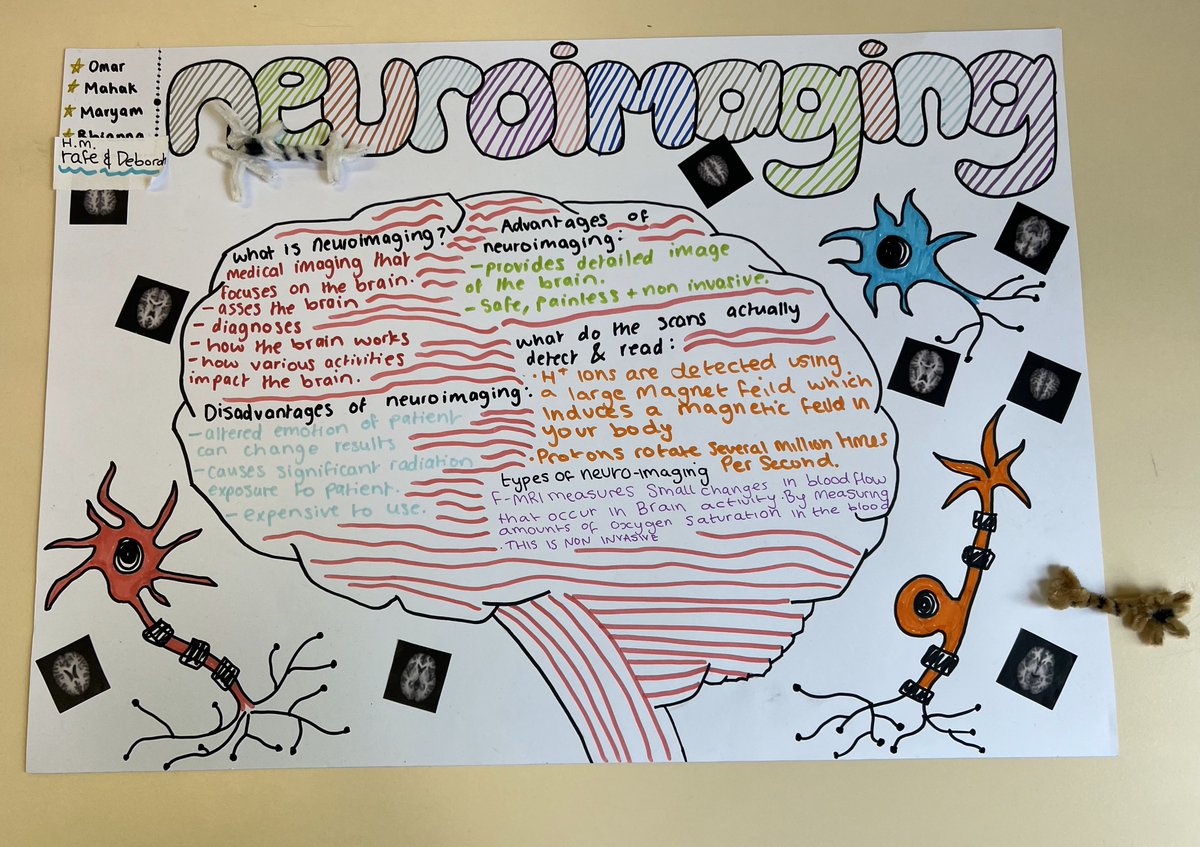 neuroimaging
Omar
Mahak
Maryam
Rhianna
H.M.
rafe & Deborah
What is neuroimaging?
medical imaging that
focuses on the brain.
- asses the brain
- diagnoses
- how the brain works
- how various activities
impact the brain.
Advantages of
neuroimaging:
- provides detailed image
of the brain.
- Safe, painless + non invasive.
what do the scans actually
detect & read:
• H+ Ions are detected using
a large Magnet feild which
Induces a magnetic feild in
your body
• Protons rotate several million times
Per Second.
Disadvantages of neuroimaging:
- altered emotion of patient
can change results
- causes significant radiation
exposure to patient.
- expensive to use.
types of neuro-imaging
F-MRI measures small changes in blood flow
that occur in Brain activity. By measuring
amounts of oxygen saturation in the blood
. THIS IS NON INVASIVE